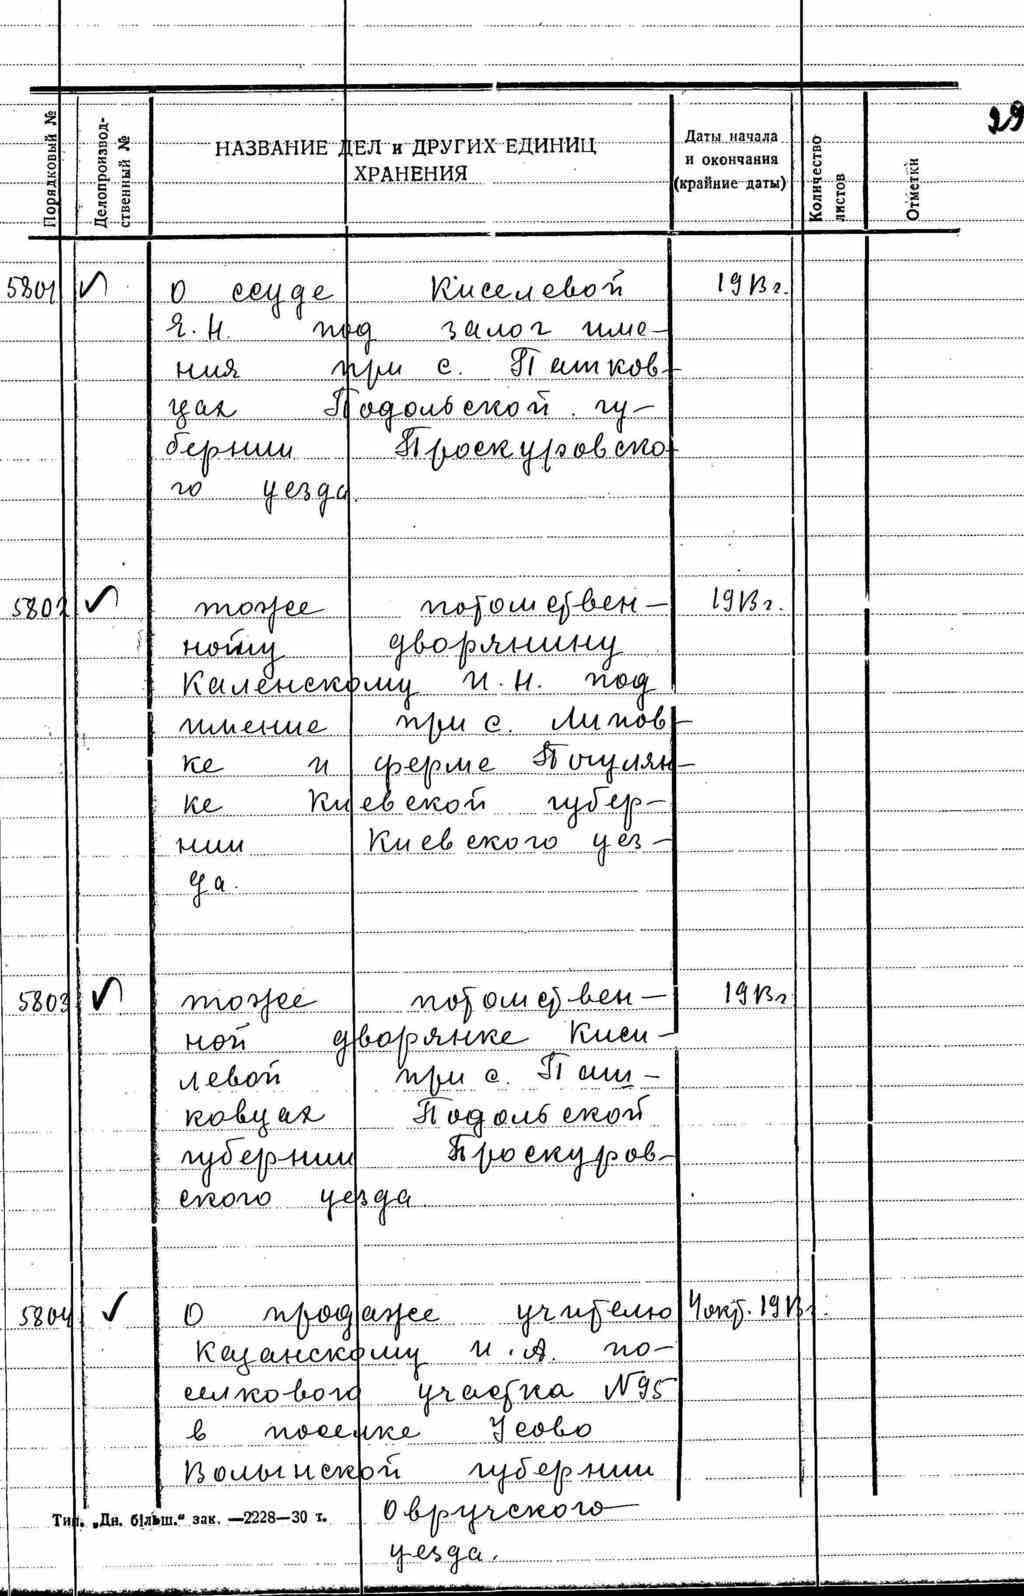 29
Порядковый №
Делопроизвод-
ственный №
НАЗВАНИЕ ДЕЛ и ДРУГИХ ЕДИНИЦ
ХРАНЕНИЯ
Даты начала
и окончания
(крайние даты)
Количество
листов
Отметки
5801 О ссуде Киселевой 1913 г.
Я.Н. под залог име-
ния при с. Пашков-
цах Подольской гу-
бернии Проскуровско-
го уезда.
5802 тоже потомствен- 1913 г.
ному дворянину
Каленскому И.Н. под
имение при с. Липов-
ке и ферме Почулян-
ке Киевской губер-
нии Киевского уез-
да.
5803 тоже потомствен- 1913 г
ной дворянке Киси-
левой при с. Паш-
ковцах Подольской
губернии Проскуров-
ского уезда
5804 О продаже учителю 4 окт. 1913 г.
Казанскому И.А. по-
селкового участка N95
в поселке Усово
Волынской губернии
Овручского
уезда.
Тип. „Дн. більш.“ зак. —2228—30 т.